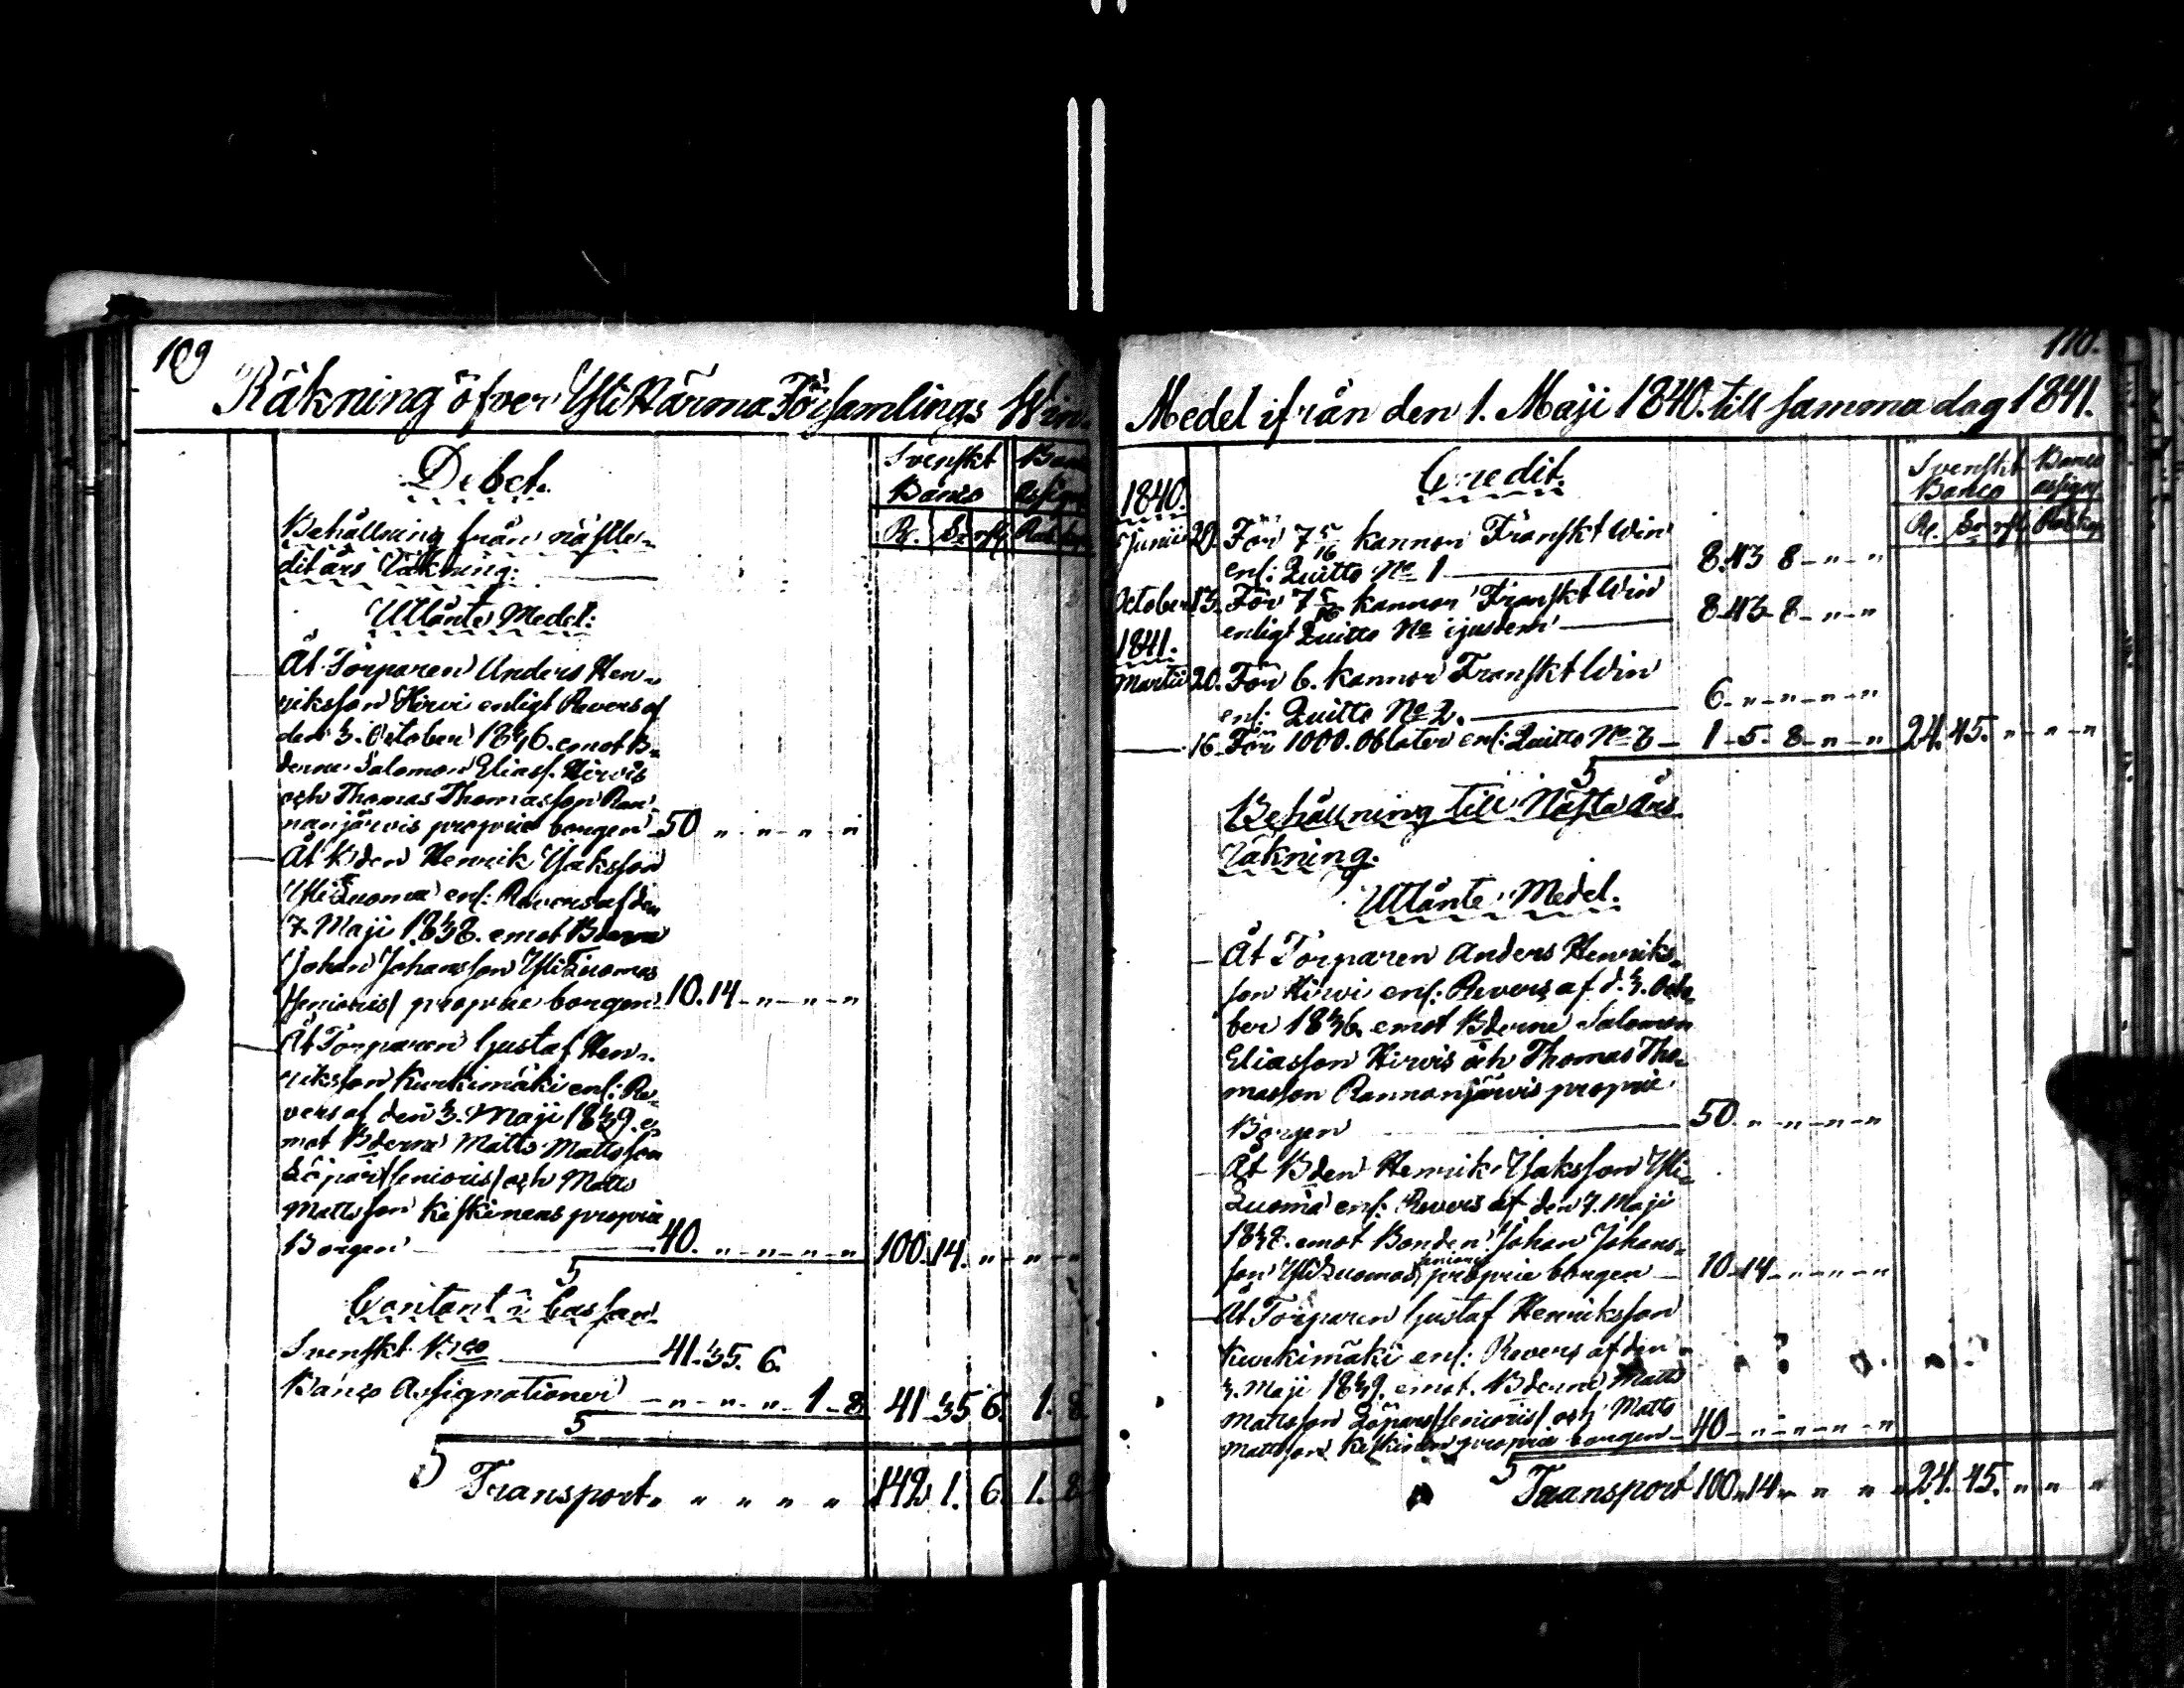 109
Räkning öfver Ylihärmä Församlings Win-
Debet.
Svenskt Banco
Banco assign
Rd. Sk. rst. Rub. kop
Behållning från näftle-
dit års Räkning:
Utlånte Medel:
Åt Torparen Anders Hen-
riksson Hirvi enligt Revers af
den 3. October 1836. emot B-
derne Salomon Eliass. Hirvis
och Thomas Thomasson Ran-
nanjärvis proprie borgen 50 " " " "
Åt Bden Henrik Isaksson
YliLuoma enl: Revers af den
7. Maji 1838. emot Bdens
Johan Johansson YliLuomas
/senioris/ proprie borgen 10. 14 " " "
Åt Torparen Gustaf Hen-
riksson Kurkimäki enl: Re-
vers af den 3. Maji 1839. e-
mot Bderne Matts Mattsson
Löpari /senioris/ och Matts
Mattsson Keskinens proprie
Borgen 40. " " " " 100. 14. " " "
Contant i Cassan
Svenskt Bco 41. 35. 6.
Banco Assignationer " " " 1. 8 41 35 6. 1. 8
Transport " " " " 142 1. 6. 1. 8
110.
Medel ifrån den 1. Maji 1840. till samma dag 1841.
Credit.
Svenskt Banco
Banco assign
Rd. Sk. rst. Rub. kop
1840.
Junii 20. För 7 5/16 kannor Franskt Win
enl: Quitto No 1 8. 43 8 " "
October 13. För 7 5/16 kannor Franskt Win
enligt Quitto No ijusdem 8 43 8 " "
1841.
Martii 20. För 6. kannor Franskt Win
enl: Quitto No 2. 6. " " " "
16. För 1000. Oblater enl: Quitto No 3 1 5. 8 " " 24. 45. " " "
Behållning till Nästa års
räkning.
Utlånte Medel.
Åt Torparen Anders Henriks-
son Hirvi enl: Revers af d. 3. Octo-
ber 1836. emot Bderne Salomon
Eliasson Hirvis och Thomas Tho-
masson Rannanjärvis proprie
Borgen 50. " " " "
Åt Bden Henrik Isaksson Yli-
Luoma enl: Revers af den 7. Maji
1838. emot Bonden Johan Johans-
son YliLuomas senioris proprie borgen 10 14 " " "
Åt Torparen Gustaf Henriksson
Kurkimäki enl: Revers af den
3. Maji 1839. emot Bderne Matts
Mattsson Löpari /senioris/ och Matts
Mattsson Keskinen proprie borgen 40 " " " "
Transport 100. 14 " " " 24. 45. " " "